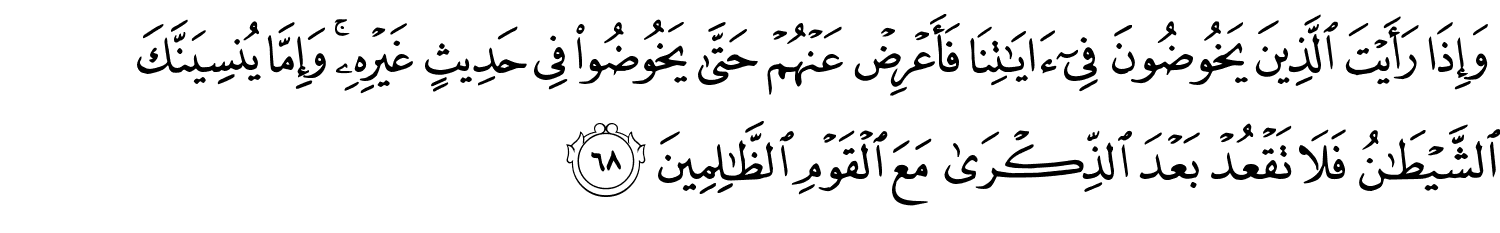 وَإِذَا رَأَيْتَ ٱلَّذِينَ يَخُوضُونَ فِىٓ ءَايَـٰتِنَا فَأَعْرِضْ عَنْهُمْ حَتَّىٰ يَخُوضُوا۟ فِى حَدِيثٍ غَيْرِهِۦ ۚ وَإِمَّا يُنسِيَنَّكَ
ٱلشَّيْطَـٰنُ فَلَا تَقْعُدْ بَعْدَ ٱلذِّكْرَىٰ مَعَ ٱلْقَوْمِ ٱلظَّـٰلِمِينَ ٦٨